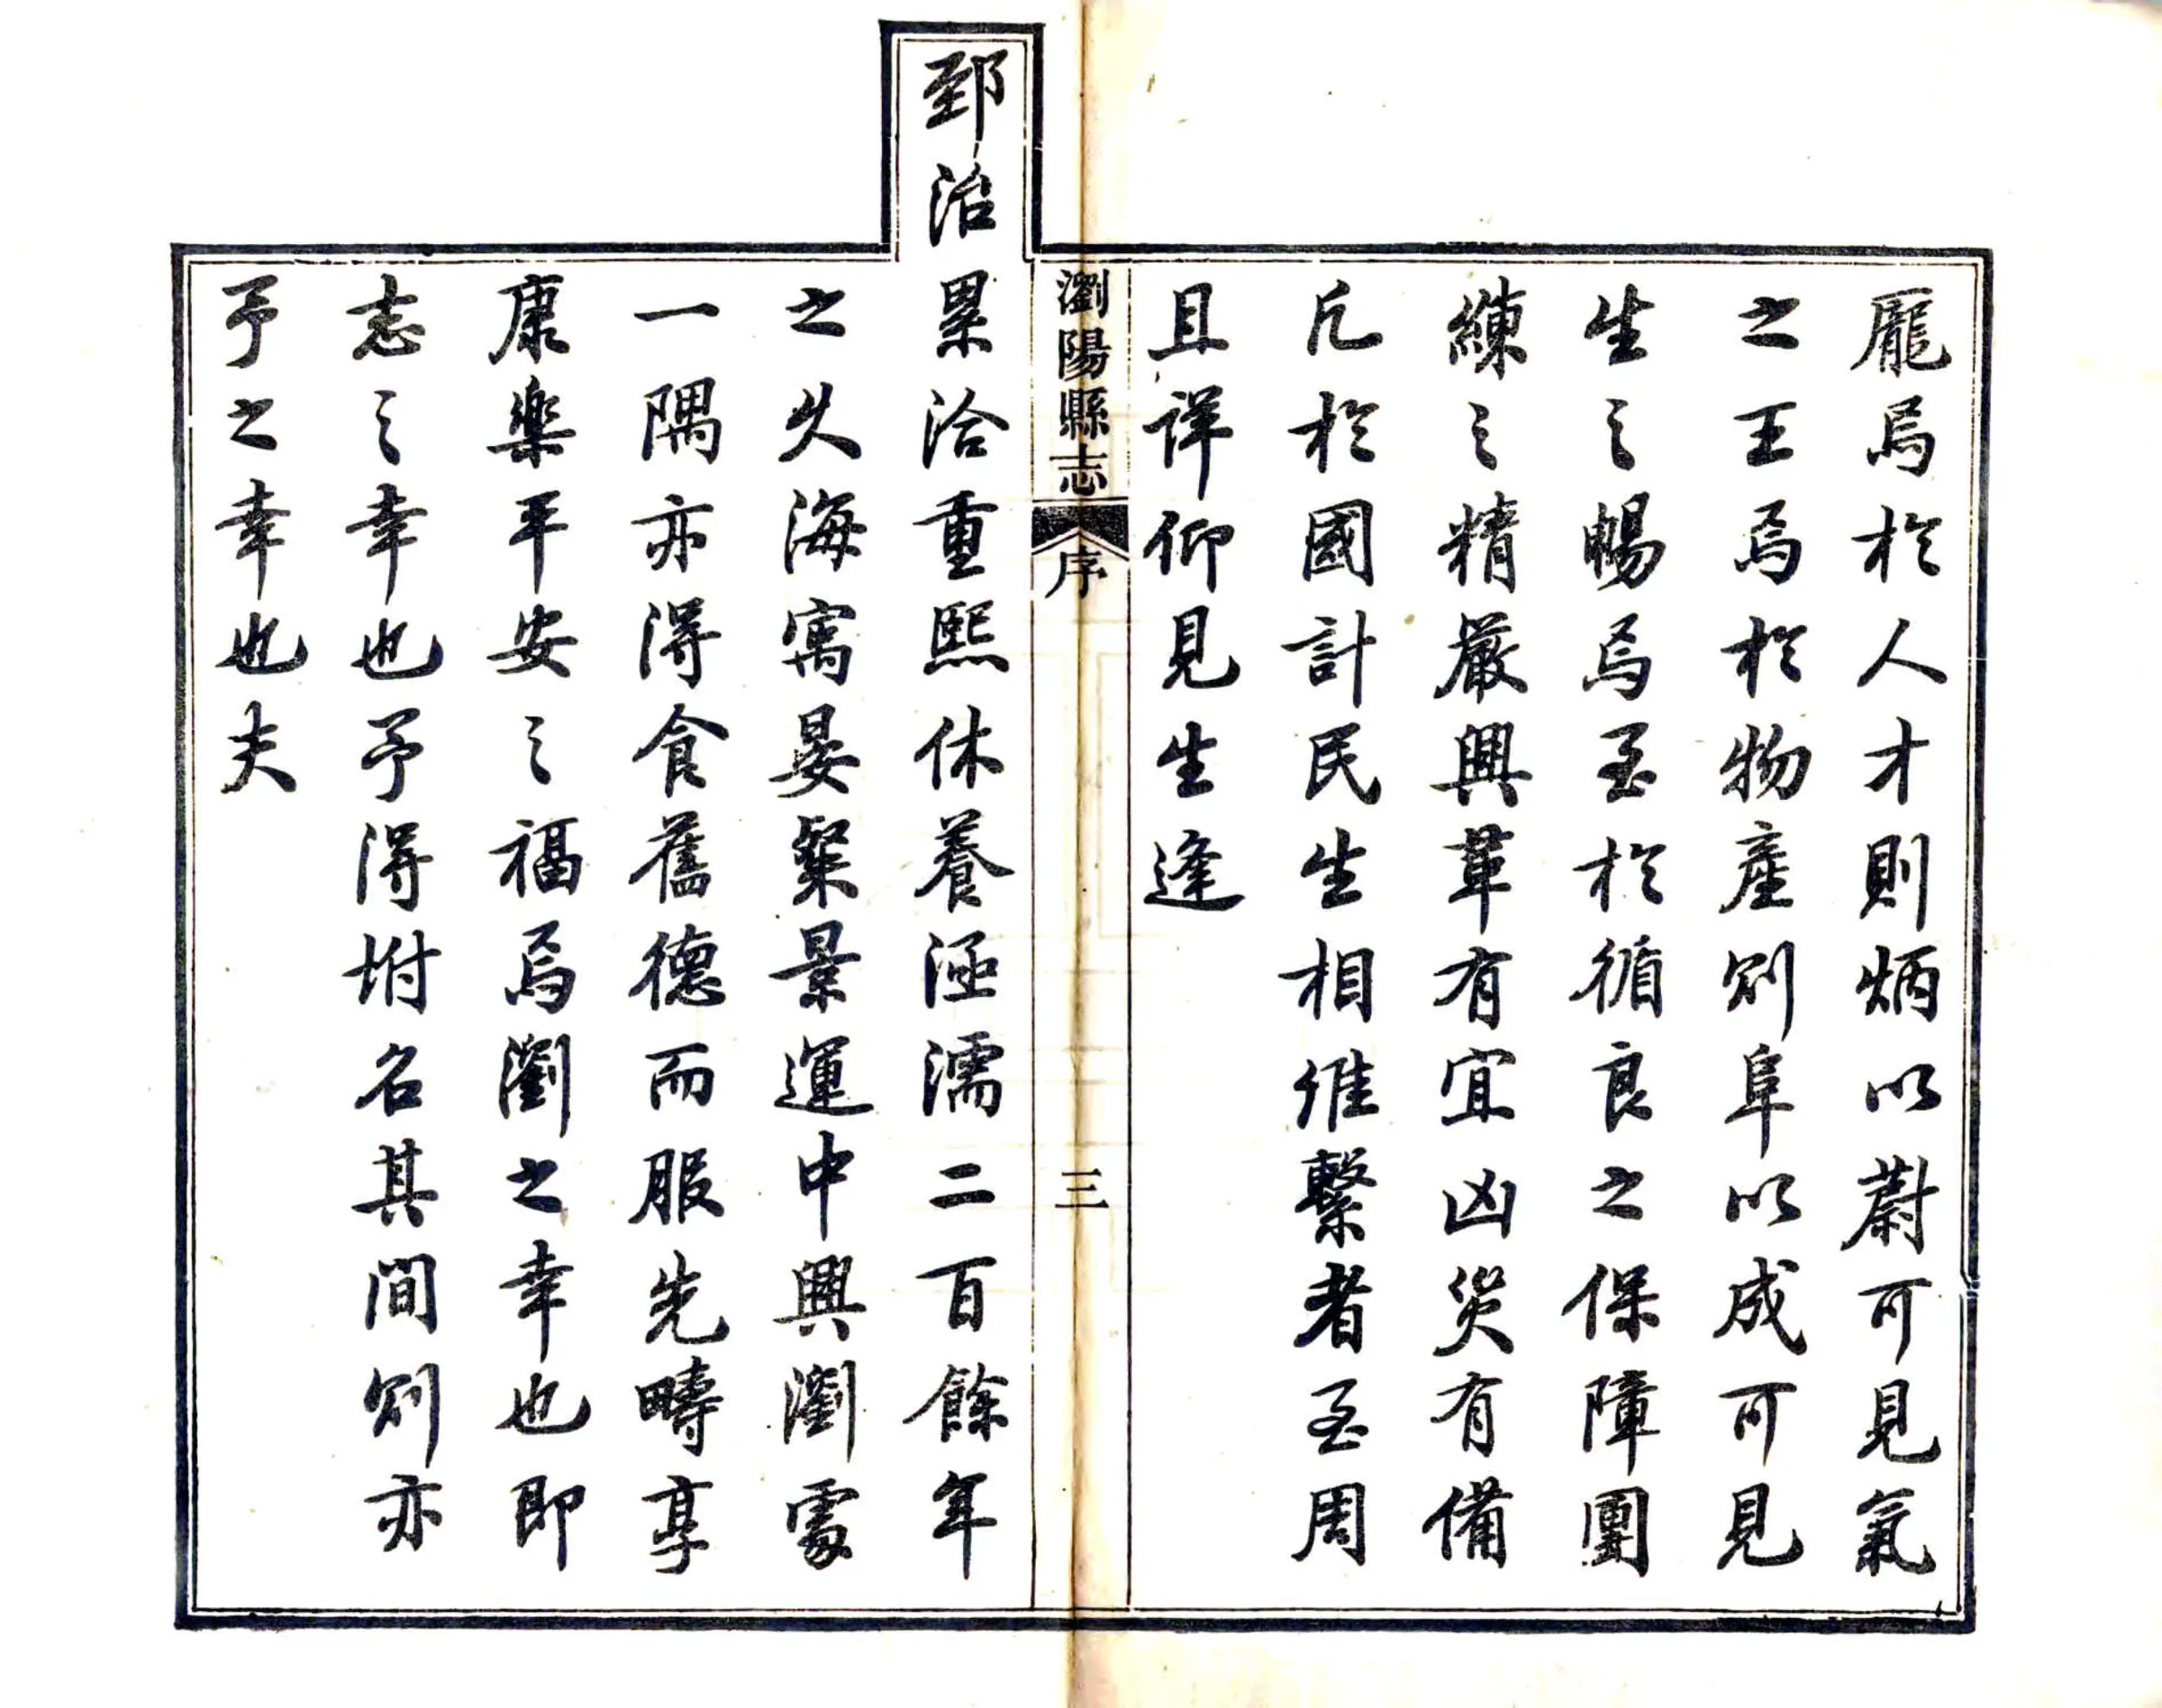 龎焉於人才則炳以蔚可見氣
之王焉於物產則阜以成可見
生之暢焉至於循良之保障團
練之精嚴興革有宜凶災有備
凡於國計民生相維繫者至周
且詳仰見生逢
瀏陽縣志 序 三
郅治累洽重熙休養涵濡二百餘年
之久海寓晏粲景運中興瀏處
一隅亦得食舊德而服先疇享
康樂平安之福焉瀏之幸也即
志之幸也予得坿名其間則亦
予之幸也夫